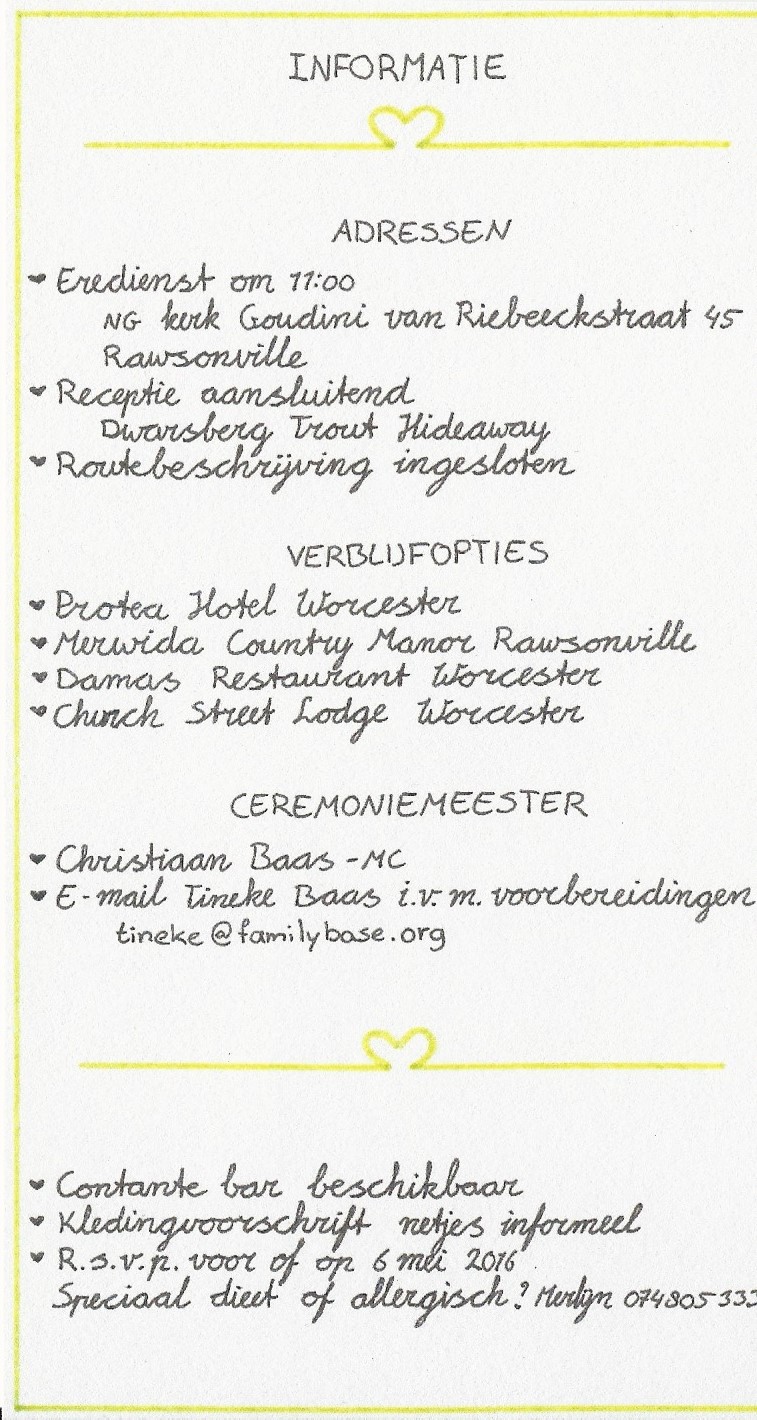 INFORMATIE
ADRESSEN
Eredienst om 11:00
NG kerk Goudini van Riebeeckstraat 45
Rawsonville
Receptie aansluitend
Dwarsberg Trout Hideaway
Routebeschrijving ingesloten
VERBLIJFOPTIES
Protea Hotel Worcester
Merwida Country Manor Rawsonville
Damas Restaurant Worcester
Church Street Lodge Worcester
CEREMONIEMEESTER
Christiaan Baas - MC
E-mail Tineke Baas i.v.m. voorbereidingen
tineke@familybase.org
Contante bar beschikbaar
Kledingvoorschrift netjes informeel
R.s.v.p. voor of op 6 mei 2016
Speciaal dieet of allergisch? Merlijn 074805333